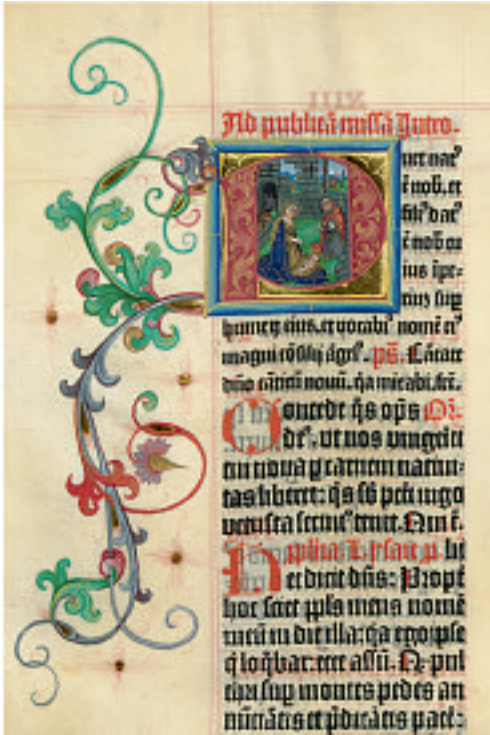 XIII
Ad publicā missā Intro.
uer nat⁹
ē nob, et
fili⁹ dat⁹
ē nob cu
ius īpe-
riuz sup
humeꝝ eius, et vocabi⁹ nomē ei⁹
magni cōsilij āgel⁹. ps. Cātate
dño cāticū nouū. qa mirabi. fec.
Concede q̄s op̄s
de⁹. vt nos vnigeniti
tui noua p carnem natiui-
tas liberet: q̄s sb pcti iugo
vetusta seruit⁹ tenet.
Lc̄ Ysaie p. hec
dicit dn̄s: Propt
hoc sciet ppls meus nomē
meū in die illa: qa ego ipse
q̄ loq̄bar: ecce assū. pul
chri sup montes pedes an
nūciātis et p̄dicātis pacē: